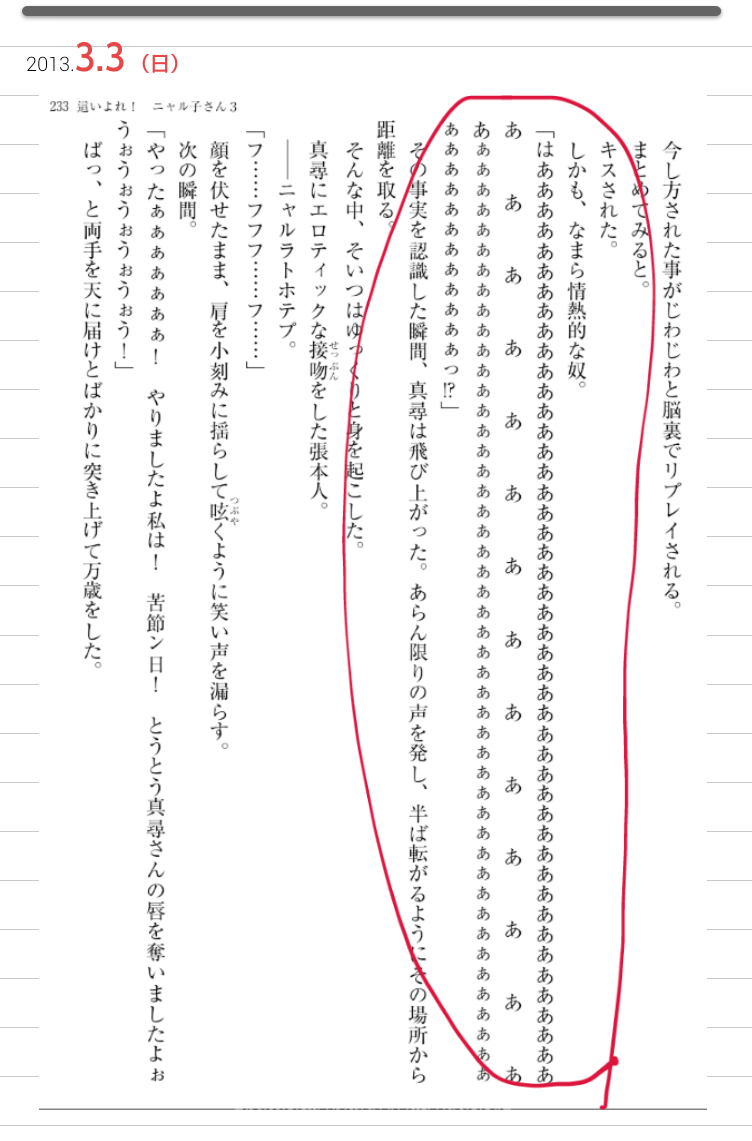 2013.3.3（日）
233 這いよれ！ ニャル子さん３
今し方された事がじわじわと脳裏でリプレイされる。
まとめてみると。
キスされた。
しかも、なまら情熱的な奴。
「はああああああああああああああああああああああああああああああああああああああああああああああ
あ あ あ あ あ あ あ あ あ あ あ あ あ あ
あぁぁぁぁぁぁぁぁぁぁぁぁぁぁぁぁぁぁぁぁぁぁぁぁぁぁぁぁぁぁぁぁぁぁぁぁぁぁぁぁぁぁぁぁぁぁぁ
ぁぁぁぁぁぁぁぁぁぁぁぁっ!?」
その事実を認識した瞬間、真尋は飛び上がった。あらん限りの声を発し、半ば転がるようにその場所から
距離を取る。
そんな中、そいつはゆっくりと身を起こした。
真尋にエロティックな接吻をした張本人。
せっぷん
――ニャルラトホテプ。
「フ……フフフ……フ……」
顔を伏せたまま、肩を小刻みに揺らして呟くように笑い声を漏らす。
つぶや
次の瞬間。
「やったぁぁぁぁぁぁぁ！　やりましたよ私は！　苦節ン日！　とうとう真尋さんの唇を奪いましたよぉ
うぉうぉうぉうぉうぉう！」
ばっ、と両手を天に届けとばかりに突き上げて万歳をした。